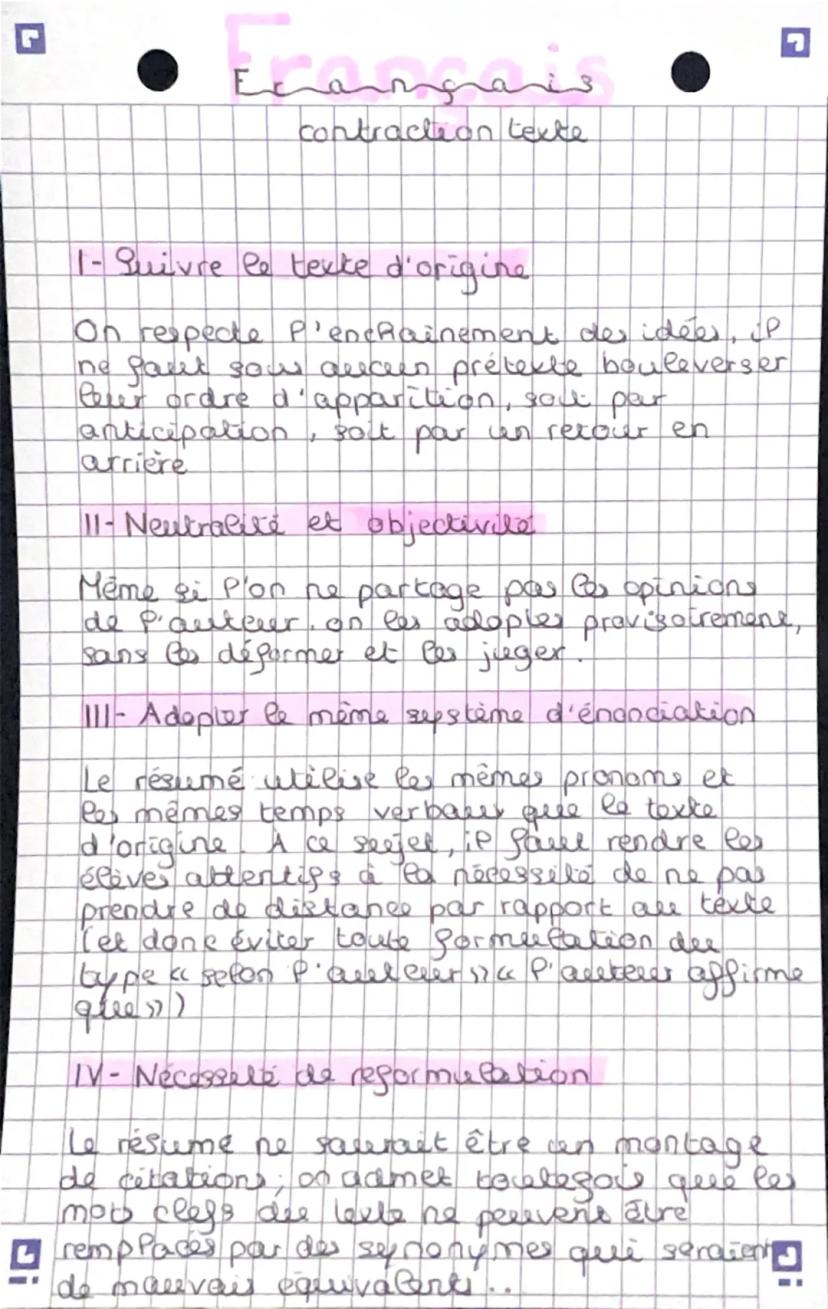 Français
Français
contraction texte
I- Suivre le texte d'origine
On respecte l'enchainement des idées, il
ne faut sous aucun prétexte bouleverser
leur ordre d'apparition, soit par
anticipation, soit par un retour en
arrière
II- Neutralité et objectivité
Même si l'on ne partage pas les opinions
de l'auteur, on les adoptes provisoirement,
sans les déformer et les juger.
III- Adopter le même système d'énonciation
Le résumé utilise les mêmes pronoms et
les mêmes temps verbaux que le texte
d'origine. A ce sujet, il faut rendre les
élèves attentifs à la nécessité de ne pas
prendre de distance par rapport au texte
(et donc éviter toute formulation du
type « selon l'auteur » « l'auteur affirme
que »)
IV- Nécessité de reformulation
Le résumé ne saurait être un montage
de citations; on admet toutefois que les
mots clefs du texte ne peuvent être
remplacés par des synonymes qui seraient
de mauvais équivalents..